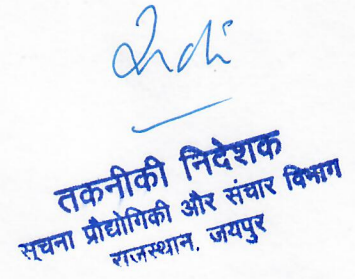 तकनीकी निदेशक
सूचना प्रौद्योगिकी और संचार विभाग
राजस्थान, जयपुर